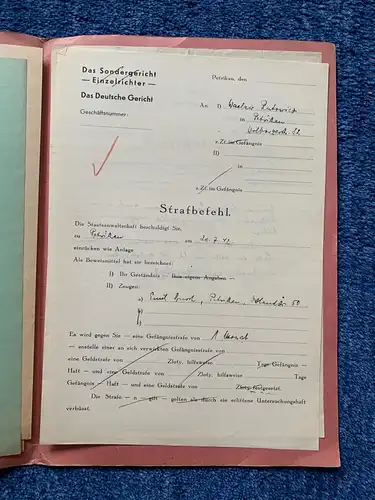 Das Sondergericht
— Einzelrichter —
Das Deutsche Gericht
Geschäftsnummer:
Petrikau, den
An I)
in Petrikau
z. Zt. im Gefängnis
II)
in
z. Zt. im Gefängnis
Strafbefehl.
Die Staatsanwaltschaft beschuldigt Sie,
zu Petrikau am 20.7.42
einrücken wie Anlage.
Als Beweismittel hat sie bezeichnet:
I) Ihr Geständnis — Ihre eigenen Angaben —
II) Zeugen:
a) Emil Petrikau, 59
Es wird gegen Sie — eine Gefängnisstrafe von 1 Monat
— anstelle einer an sich verwirkten Gefängnisstrafe von —
eine Geldstrafe von — Zloty, hilfsweise — Tage Gefängnis
Haft — und eine Geldstrafe von — Zloty, hilfsweise — Tage
Gefängnis — Haft — und eine Geldstrafe von — Zloty, festgesetzt.
Die Strafe — n — gilt — gelten als durch die erlittene Untersuchungshaft
verbüsst.